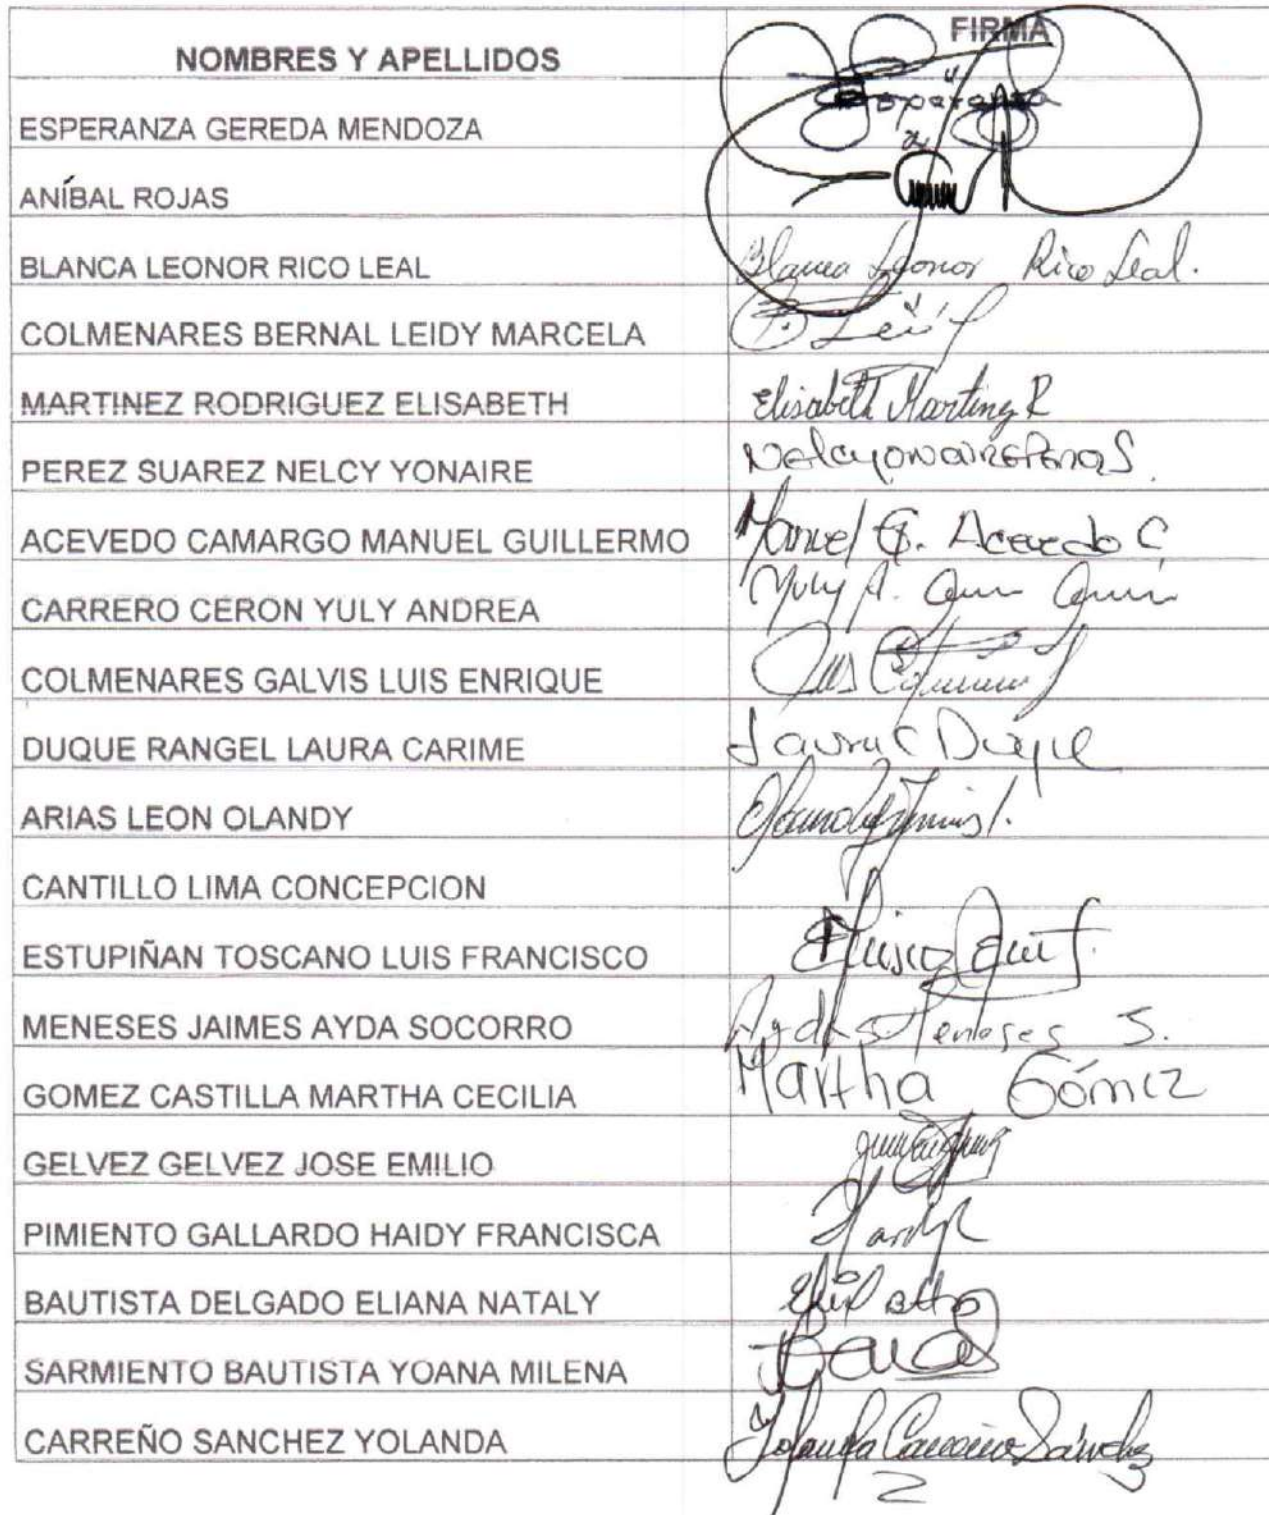 NOMBRES Y APELLIDOS FIRMA
ESPERANZA GEREDA MENDOZA Esperanza
ANÍBAL ROJAS
BLANCA LEONOR RICO LEAL Blanca Leonor Rico Leal.
COLMENARES BERNAL LEIDY MARCELA
MARTINEZ RODRIGUEZ ELISABETH Elisabeth Martinez R
PEREZ SUAREZ NELCY YONAIRE
ACEVEDO CAMARGO MANUEL GUILLERMO Manuel G. Acevedo C
CARRERO CERON YULY ANDREA Yuly A.
COLMENARES GALVIS LUIS ENRIQUE Luis
DUQUE RANGEL LAURA CARIME Laura C Duque
ARIAS LEON OLANDY
CANTILLO LIMA CONCEPCION
ESTUPIÑAN TOSCANO LUIS FRANCISCO
MENESES JAIMES AYDA SOCORRO Ayda S. Meneses J.
GOMEZ CASTILLA MARTHA CECILIA Martha Gómez
GELVEZ GELVEZ JOSE EMILIO
PIMIENTO GALLARDO HAIDY FRANCISCA
BAUTISTA DELGADO ELIANA NATALY
SARMIENTO BAUTISTA YOANA MILENA
CARREÑO SANCHEZ YOLANDA Yolanda Carreño Sánchez